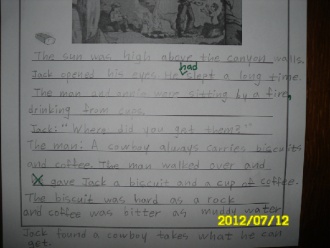 The sun was high above the canyon walls.
Jack opened his eyes. He had slept a long time.
The man and were sitting by a fire,
drinking from cups.
Jack: "Where did you get them?"
The man: A cowboy always carries biscuits
and coffee. The man walked over and
gave Jack a biscuit and a cup of coffee.
The biscuit was hard as a rock
and coffee was bitter as muddy water
Jack found a cowboy takes what he can
get.
2012/07/12